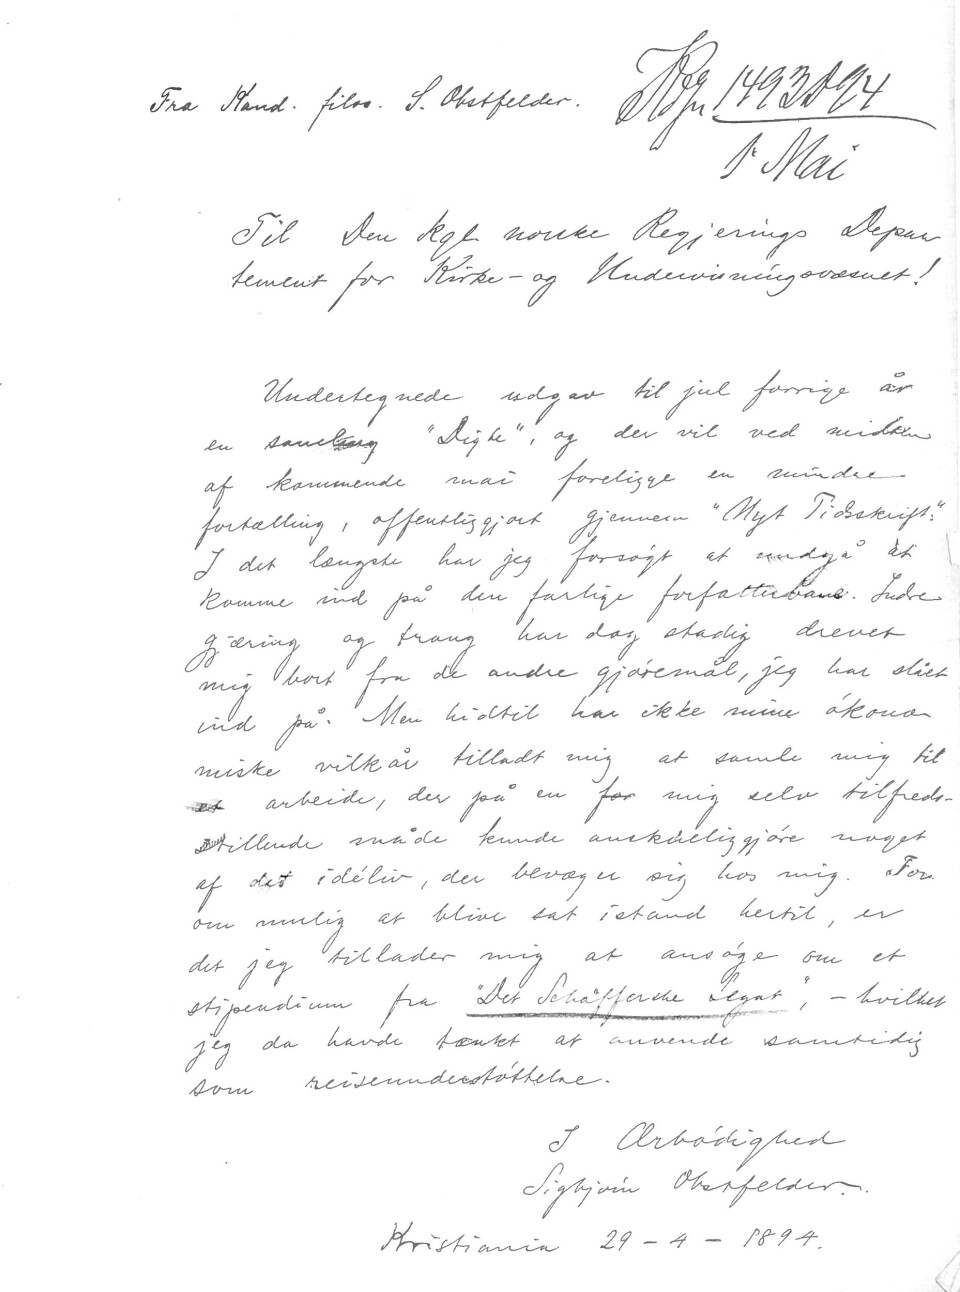 Fra Kand. filos. S. Obstfelder.
1493 D 94
1 Mai
Til Den kgl. norske Regjerings Depar
tement for Kirke- og Undervisningsvæsnet!
Undertegnede udgav til jul forrige år
en samling "Digte", og der vil ved midten
af kommende mai foreligge en mindre
fortælling, offentliggjort gjennem "Nyt Tidsskrift".
I det længste har jeg forsøgt at undgå at
komme ind på den farlige forfatterbane. Indre
gjæring og trang har dog stadig drevet
mig bort fra de andre gjøremål, jeg har slået
ind på. Men hidtil har ikke mine økono
miske vilkår tilladt mig at samle mig til
et arbeide, der på en for mig selv tilfreds-
stillende måde kunde anskueliggjøre noget
af det idéliv, der bevæger sig hos mig. For
om mulig at blive sat istand hertil, er
det jeg tillader mig at ansøge om et
stipendium fra "Det Schäfferske Legat", – hvilket
jeg da havde tænkt at anvende samtidig
som reiseunderstøttelse.
I Ærbødighed
Sigbjørn Obstfelder.
Kristiania 29 – 4 – 1894.